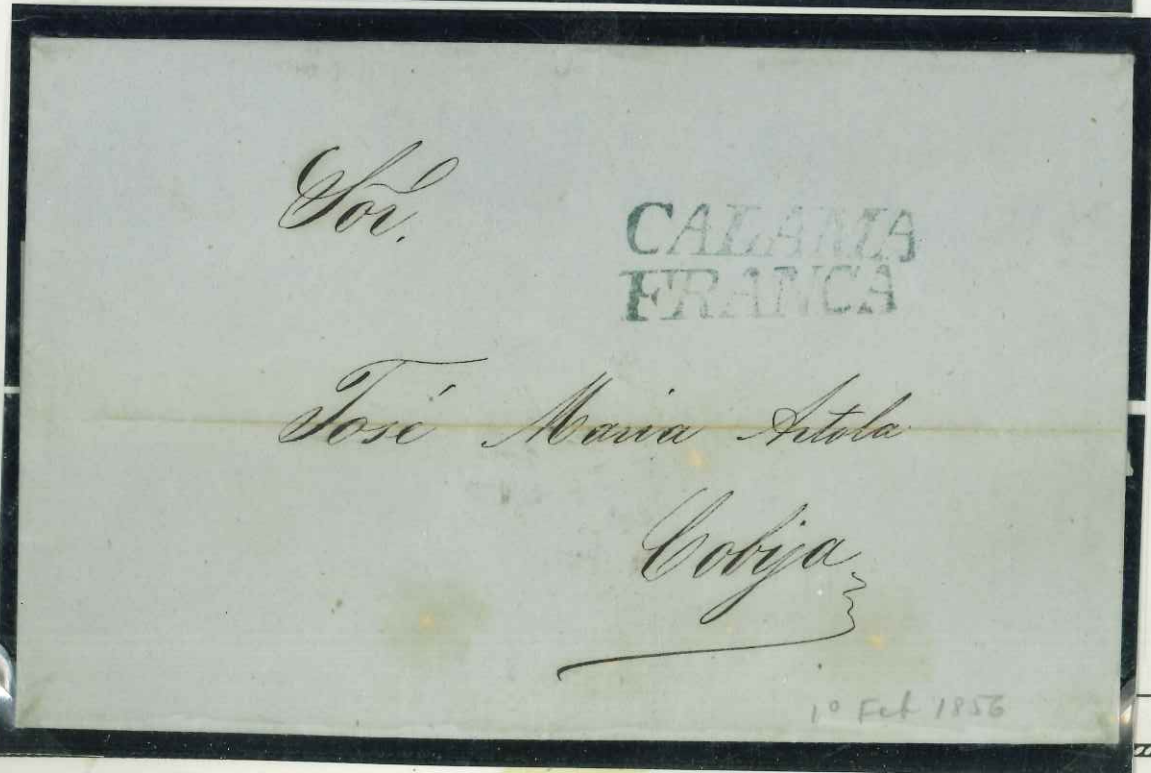 Sor.
CALAMA
FRANCA
José Maria Artola
Cobija
1º Feb 1856